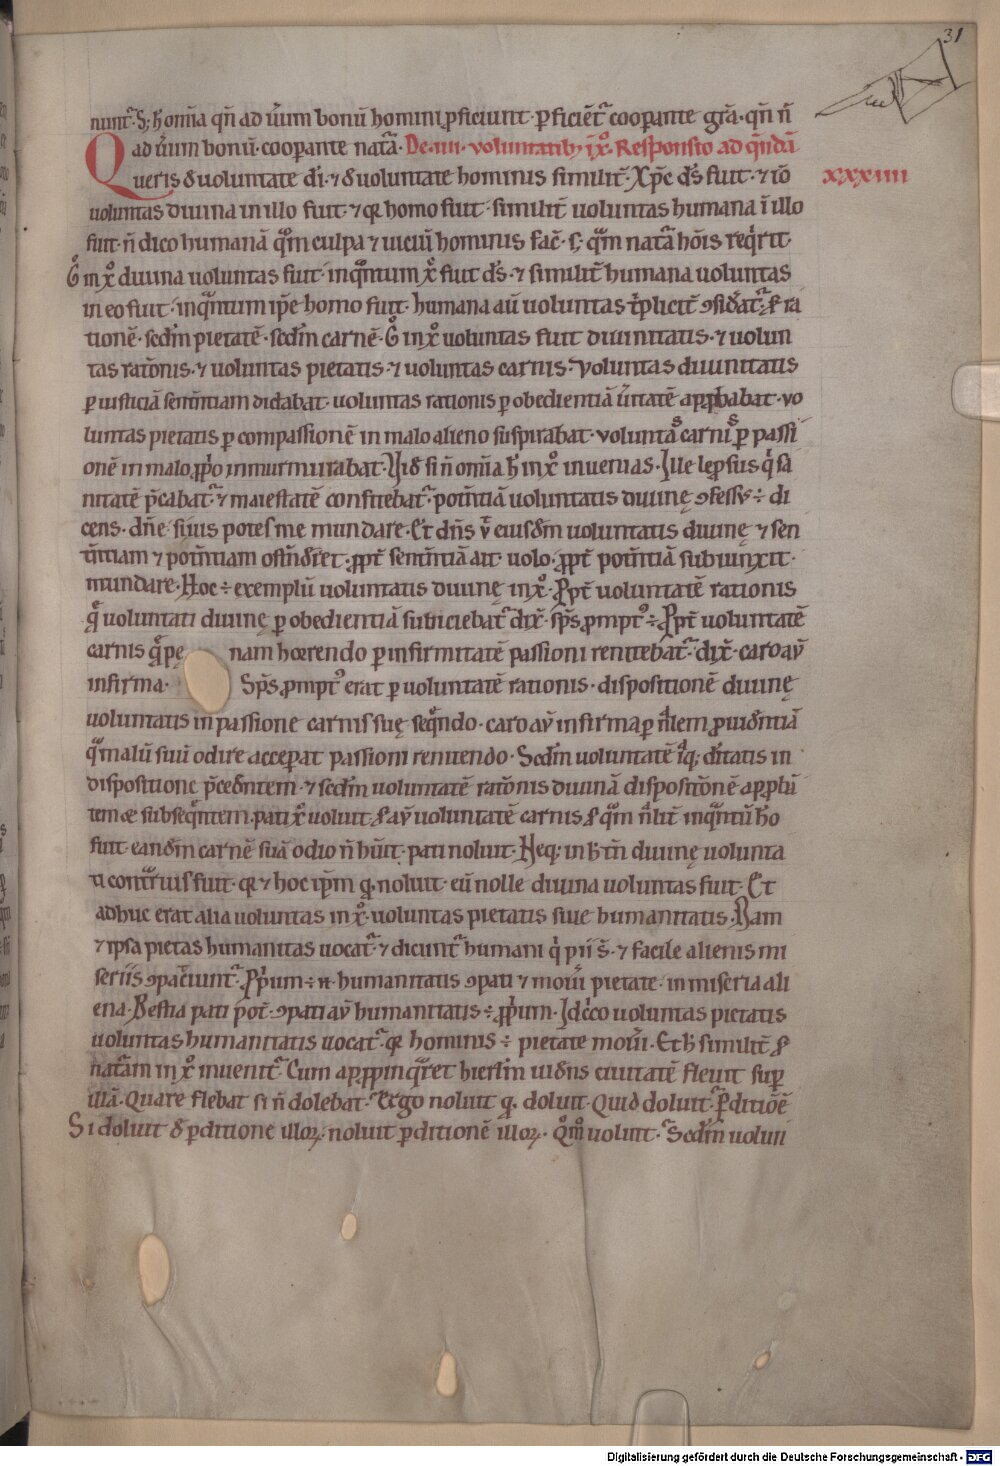 31
nunt᷑. S; h̄ om̄ia qn̄ ad uı̄um bonū homini ꝓficiunt. ꝑficiēt᷑ cooꝑante gr̄a. qn̄ n̄
ad uı̄um bonū. cooꝑante nat᷑a. De. iiii. voluntatib; ı̄ xͦ. Responsio ad qn̄dā
Queris đ uoluntate dı̄. ⁊ đ uoluntate hominis similit̄. Xp̄c ds̄ fuit. ⁊ iō
xxxiiii
voluntas diuina in illo fuit. ⁊ qꝛ homo fuit. similit̄ uoluntas humana ı̄ illo
fuit. n̄ dico humanā qͦm culpa ⁊ uiciū hominis fac̄. s; qͣm nat᷑a hōis reqͥrit.
Gͦ in xͦ diuina uoluntas fuit. inqͣntum xͦ fuit ds̄. ⁊ similit̄ humana uoluntas
in eo fuit. inqͣntum ip̄e homo fuit. humana aū uoluntas tͥplicit̄ ꝯsiđat᷑. s̄ ra
tionē. scd̄m pietatē. scd̄m carnē. Gͦ in xͦ uoluntas fuit diuinitatis. ⁊ uolun
tas rat̄onis. ⁊ uoluntas pietatis. ⁊ uoluntas carnis. Voluntas diuinitatis
ꝑ iusticiā sent̄ntiam dictabat. uoluntas rationis ꝑ obedientiā ūitatē apꝓbabat. vo
luntas pietatis ꝑ compassionē in malo alieno suspirabat. voluntas carnis ꝑ passi
onē in malo ꝓpͥo inmurmurabat. Viđ si n̄ om̄ia h̄ in xͦ inuenias. Ille leprosus qͥ sa
nitatē p̄cabat᷑. ⁊ maiestatē confitebat᷑. pot̄ntiā uoluntatis diuinę ꝯfessꝰ ÷ di
cens. dn̄e si uis potes me mundare. Et dn̄s v̄ eiusđm uoluntatis diuinę ⁊ sen
t̄ntiam ⁊ pot̄ntiam ostn̄đret. ꝓpt̄ sent̄ntiā ait. uolo. ꝓpt̄ pot̄ntiā subiunxit.
mundare. Hoc ÷ exemplū uoluntatis diuinę in xͦ. Ꝓpt̄ uoluntatē rationis
q̄ uoluntati diuinę ꝑ obedientiā subiciebat᷑ dix̄. sp̄s ꝓmptꝰ ÷. Ꝓpt̄ uoluntatē
carnis q̄ pę nam horrendo ꝑ infirmitatē passioni renitebat᷑. dix̄. caro aū
infirma. Sp̄s ꝓmptꝰ erat ꝑ uoluntatē rationis. dispositionē diuinę
uoluntatis in passione carnis suę seqn̄do. caro aū infirma ꝑ nͣlem ꝓuiđntiā
qͣ malū suū odire acceꝑat passioni renitendo. Scd̄m uoluntatē iͣq; dı̄tatis in
dispositione p̄ceđntem. ⁊ scd̄m uoluntatē rat̄onis diuinā disposit̄onē apꝓbā
tem ⁊ subseqn̄tem. pati xͨ uoluit. s̄ aū uoluntatē carnis s̄ qͣm nͣlit̄ inqͣntū hͦo
fuit eanđm carnē suā odio n̄ hūit. pati noluit. Neq; in h̄ tn̄ diuinę uolunta
ti contͣrius fuit. qꝛ ⁊ hoc ip̄m qͦ. noluit. eū nolle diuina uoluntas fuit. Et
adhuc erat alia uoluntas in xͦ. uoluntas pietatis siue humanitatis. Nam
⁊ ipsa pietas humanitas uocat᷑. ⁊ dicunt᷑ humani qͥ pii s̄. ⁊ facile alienis mi
seriis ꝯpaciunt᷑. Ꝓpͥum ÷ n̄. humanitatis ꝯpati ⁊ mouı̄ pietate. in miseria ali
ena. Bestia pati pot̄. ꝯpati aū humanitatis ÷ ꝓpͥum. Idc̄co uoluntas pietatis
uoluntas humanitatis uocat᷑. qꝛ hominis ÷ pietate mouı̄. Et h̄ similit̄ s̄
nat᷑am in xͦ inuenit᷑. Cum apꝓpinqͣret hierl̄m uiđns ciuitatē fleuit suꝑ
illā. Quare flebat si n̄ dolebat. Ergo noluit qͦ. doluit. Quid doluit. ꝑditiōē
Si doluit đ ꝑditione illoꝝ. noluit ꝑditionē illoꝝ. Qͦm̄ uoluit. Scd̄m uolun
Digitalisierung gefördert durch die Deutsche Forschungsgemeinschaft - DFG